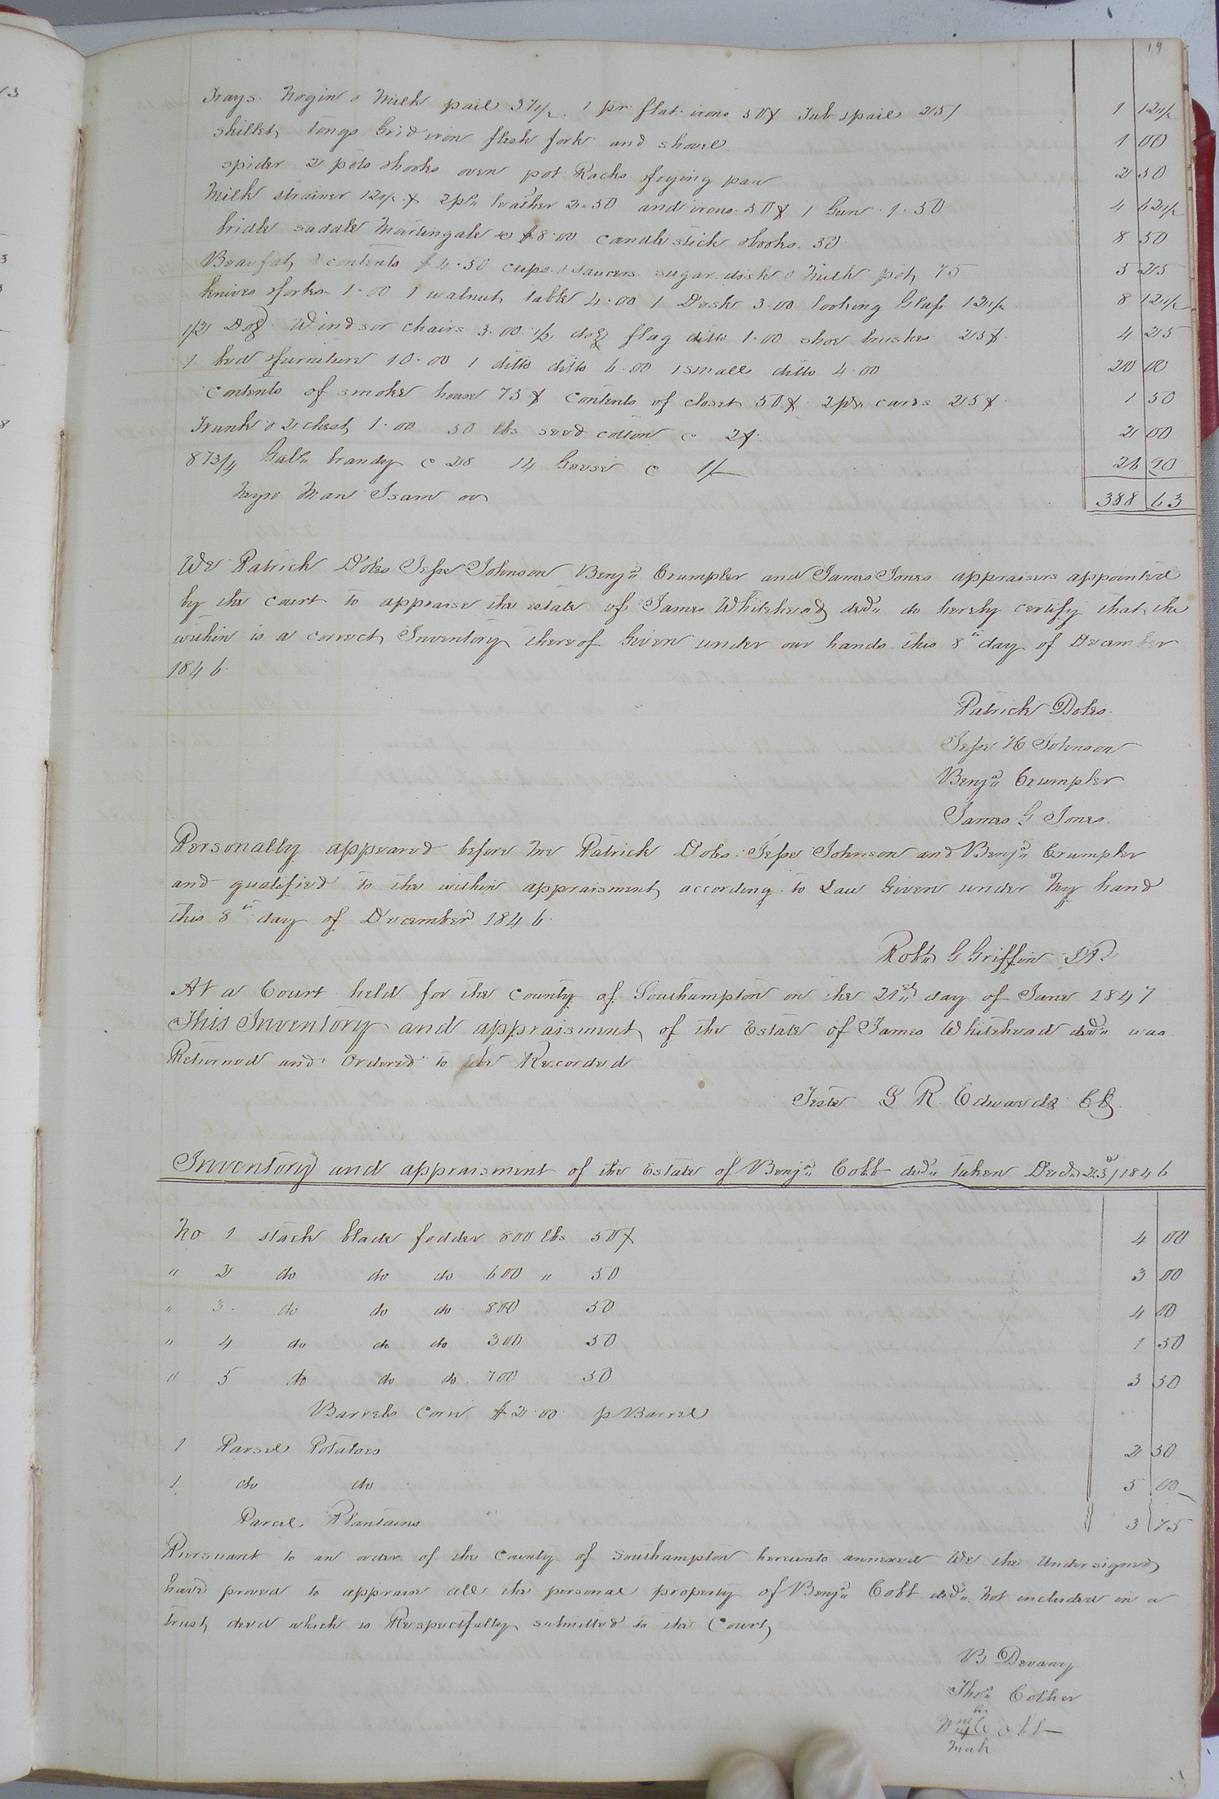 19
Trays Nogin & Milk pail 37 1/2 1 pr flat irons 50¢ Tub & pail 25¢ 1 12 1/2
Skillet, tongs Grid iron flesh fork and shovel 1 00
spider 2 pots & hooks oven pot Racks frying pan 2 50
Milk strainer 12 1/2 ¢ 2 ps leather 2.50 and irons 50¢ 1 Gun 1.50 4 62 1/2
bridle saddle Martingale &c $8.00 candlestick & books 50 8 50
Beaufat & contents $4.50 cups & saucers sugar dish & Milk pot 75 5 25
knives & forks 1.00 1 walnut table 4.00 1 Desk 3.00 looking Glass 12 1/2 8 12 1/2
1/2 Doz Windsor chairs 3.00 1/2 doz flag ditto 1.00 shoe brushes 25¢ 4 25
1 bed & furniture 10.00 1 ditto ditto 6.00 1 small ditto 4.00 20 00
Contents of smoke house 75¢ Contents of closet 50¢ 2 pr cards 25¢ 1 50
Trunk & 2 chest 1.00 50 lbs seed cotton @ 2¢ 2 00
87 3/4 Galn brandy @ 28 14 Geese @ 1/ 26 90
Negro Man Isam 00 388 63
We Patrick Doles Jesse Johnson Benjn Crumpler and James Jones appraisers appointed
by the court to appraise the estate of James Whitehead decd do hereby certify that the
within is a correct Inventory thereof Given under our hands this 8th day of December
1846
Patrick Doles
Jesse H Johnson
Benjn Crumpler
James G Jones
Personally appeared before me Patrick Doles Jesse Johnson and Benjn Crumpler
and qualified to the within appraisment according to Law Given under My hand
this 8th day of December 1846
Robt G Griffin JP
At a Court held for the County of Southampton on the 21st day of June 1847
This Inventory and appraisment of the Estate of James Whitehead decd was
Returned and Ordered to be Recorded
Teste L R Edwards CC
Inventory and appraisment of the Estate of Benjn Cobb decd taken Decr 23d 1846
No 1 stack blade fodder 800 lbs 50¢ 4 00
" 2 do do do 600 " 50 3 00
" 3 do do do 800 50 4 00
" 4 do do do 300 50 1 50
" 5 do do do 700 50 3 50
Barrels Corn $2.00 p Barrel
1 Parsel Potatoes 2 50
1 do do 5 00
Parcel Plantains 3 75
Pursuant to an order of the County of Southampton hereunto annexed We the Undersigned
have proved to appraise all the personal property of Benjn Cobb decd not included in a
trust deed which is Respectfully submitted to the Court
B Devany
Thos
Wm Cobb
mark